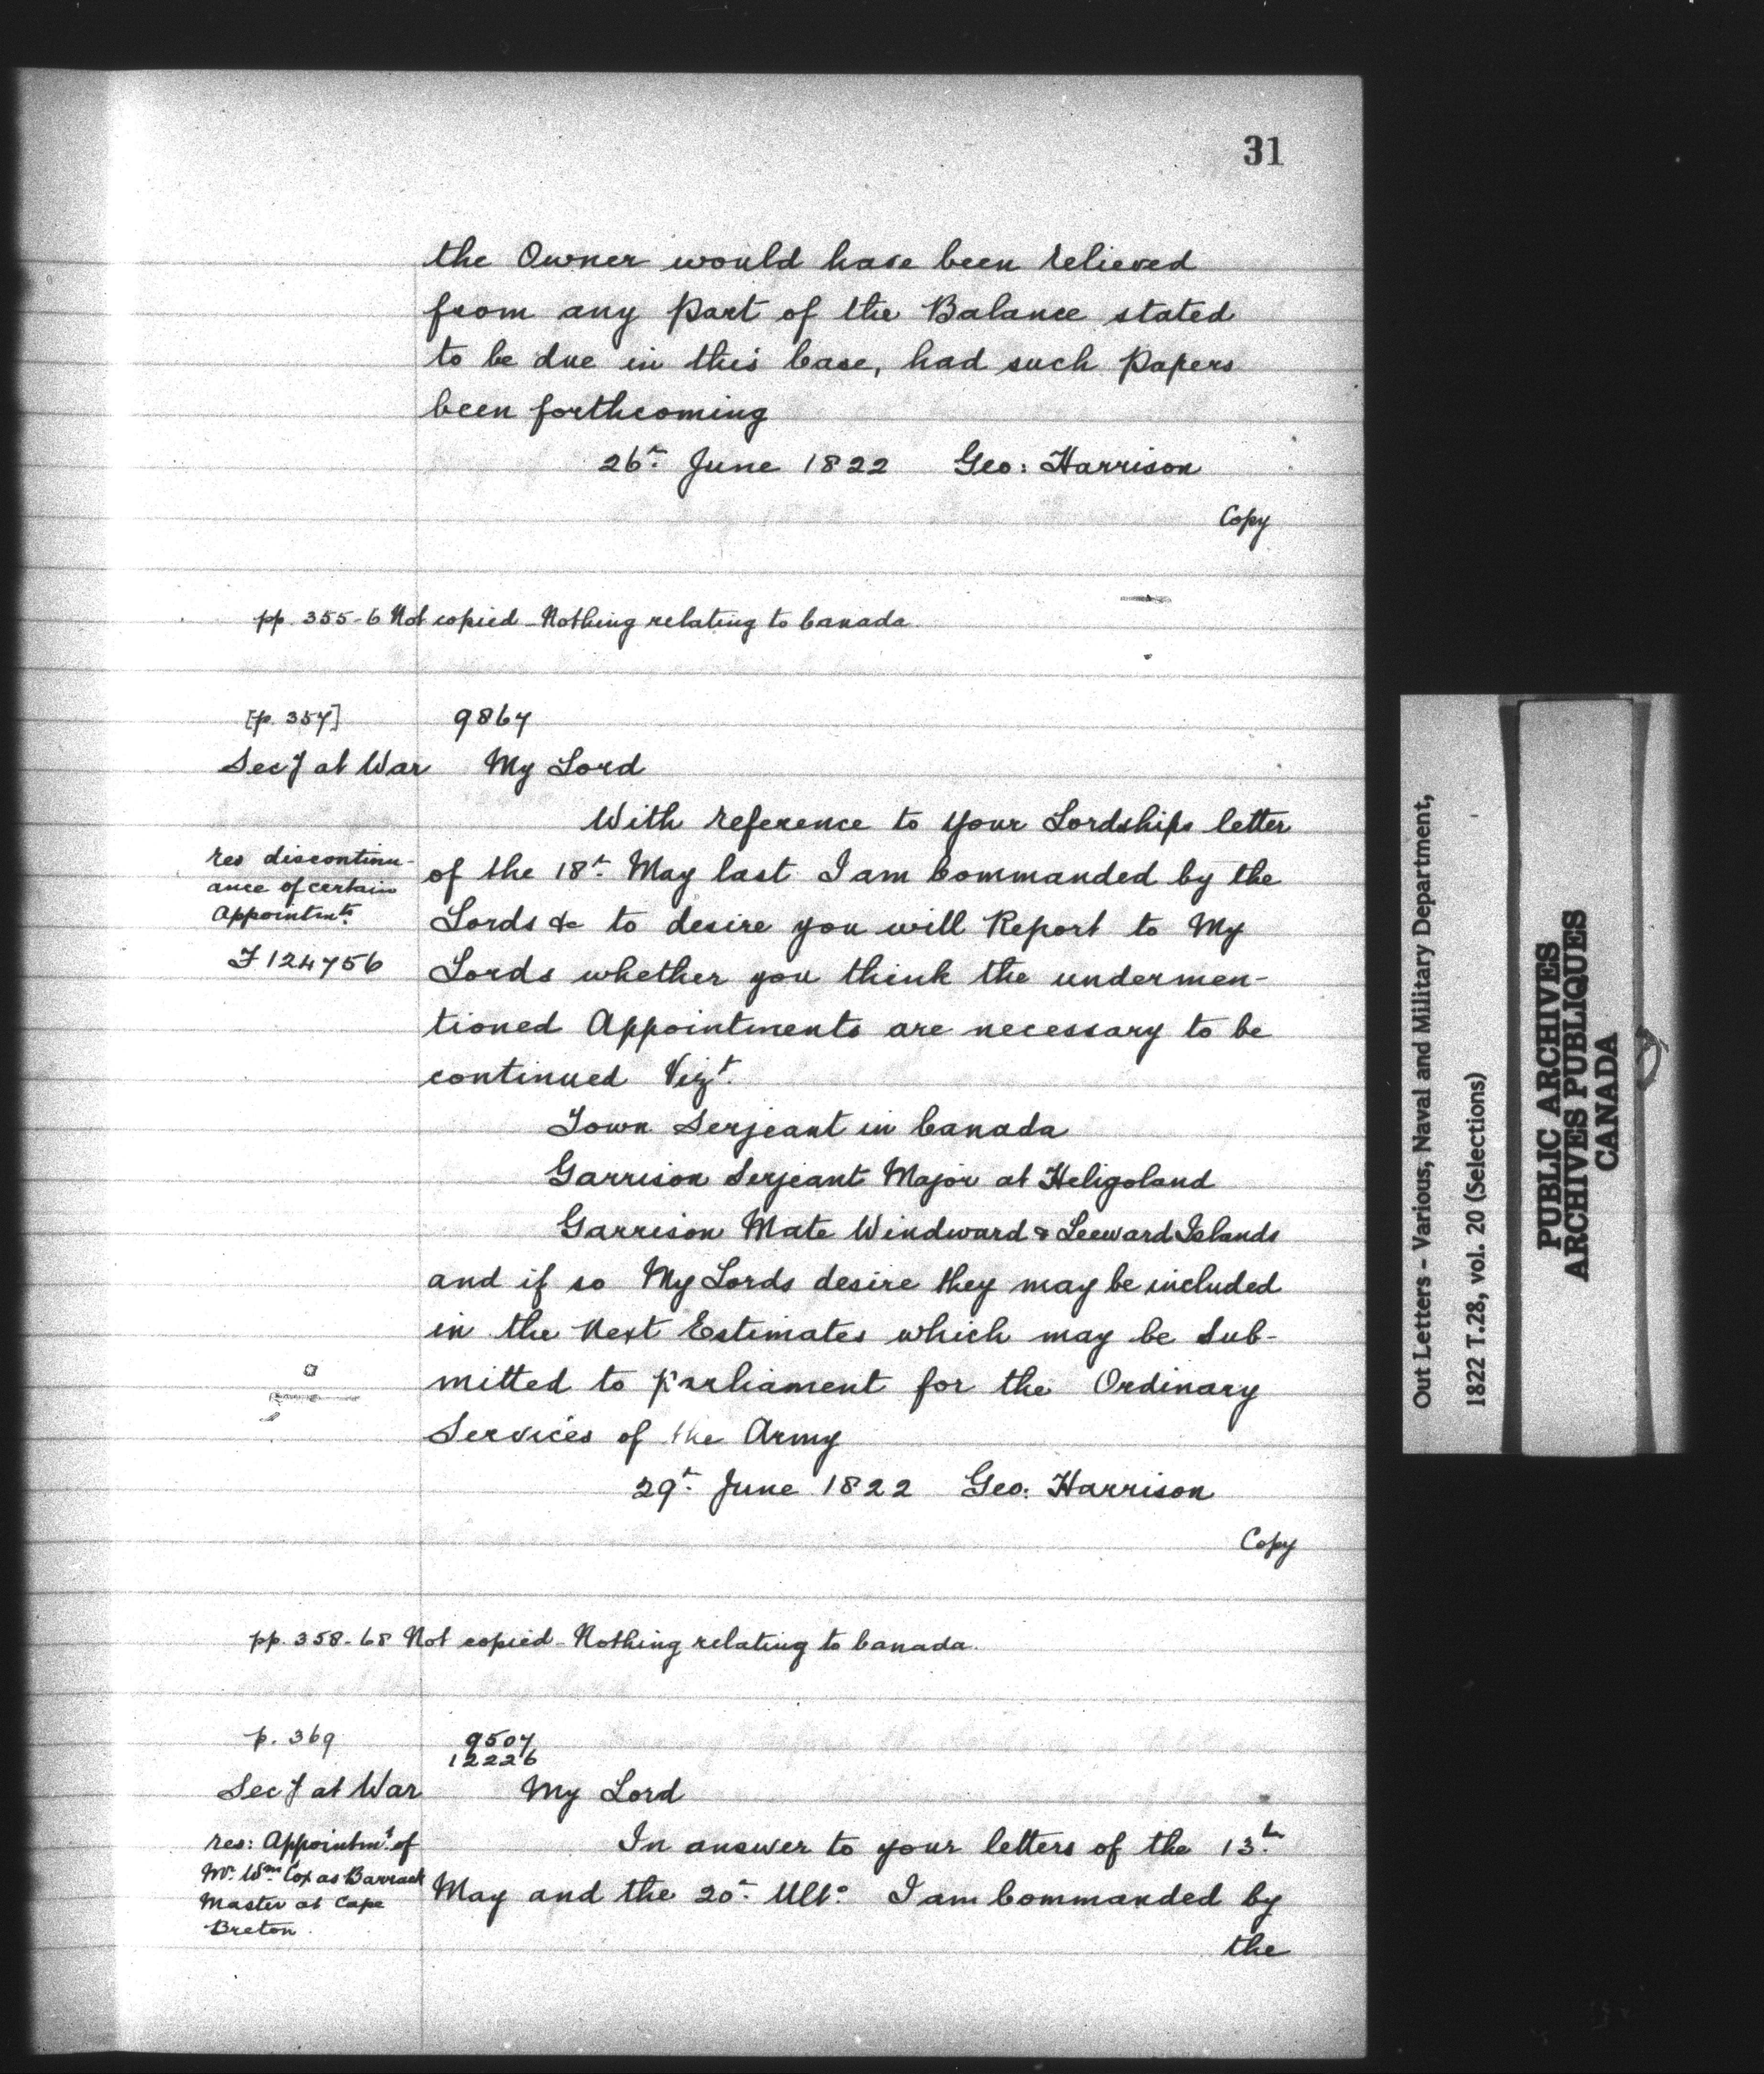 31
the Owner would have been relieved
from any part of the Balance stated
to be due in this Case, had such Papers
been forthcoming
26t. June 1822 Geo: Harrison
Copy
pp. 355-6 Not copied - Nothing relating to Canada.
[p. 357] 9867
Secy at War My Lord
With reference to your Lordships letter
res discontinu-
ance of certain
Appointmts.
F 124756
of the 18t. May last I am Commanded by the
Lords &c to desire you will Report to My
Lords whether you think the undermen-
tioned Appointments are necessary to be
continued Vizt.
Town Serjeant in Canada
Garrison Serjeant Major at Heligoland
Garrison Mate Windward & Leeward Islands
and if so My Lords desire they may be included
in the next Estimates which may be sub-
mitted to parliament for the Ordinary
Services of the Army
29t. June 1822 Geo: Harrison
Copy
pp. 358-68 Not copied - Nothing relating to Canada.
p. 369 9507
12226
Secy at War My Lord
res: Appointmt. of
Mr. Wm Cox as Barrack
Master at Cape
Breton.
In answer to your letters of the 13th.
May and the 20t. Ulto. I am Commanded by
the
Out Letters - Various, Naval and Military Department,
1822 T.28, vol. 20 (Selections)
PUBLIC ARCHIVES
ARCHIVES PUBLIQUES
CANADA